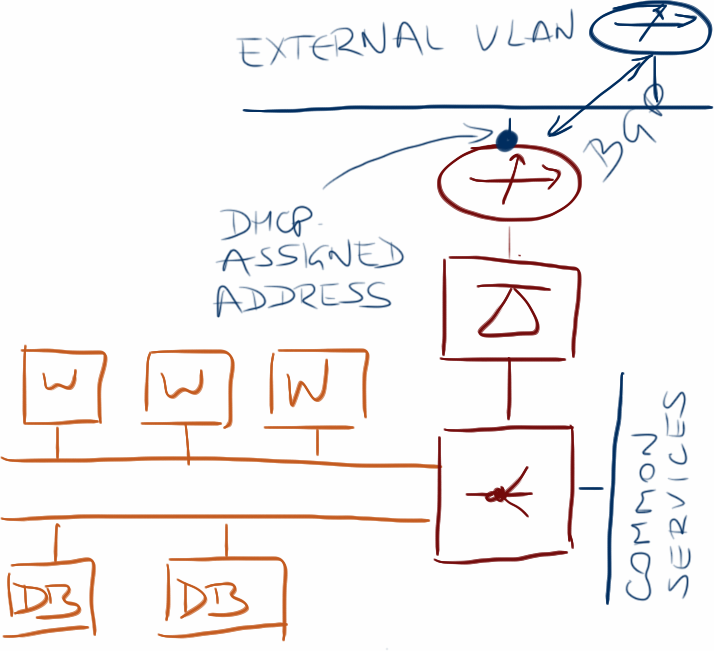 EXTERNAL VLAN
BGP
DHCP
ASSIGNED
ADDRESS
W W W
COMMON
SERVICES
DB DB